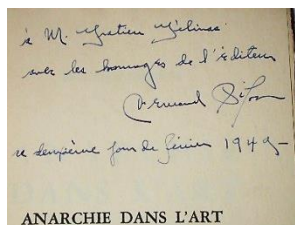 à M. Gratien Gélinas
avec les hommages de l'éditeur
Armand
ce deuxième jour de février 1949 –
ANARCHIE DANS L'ART